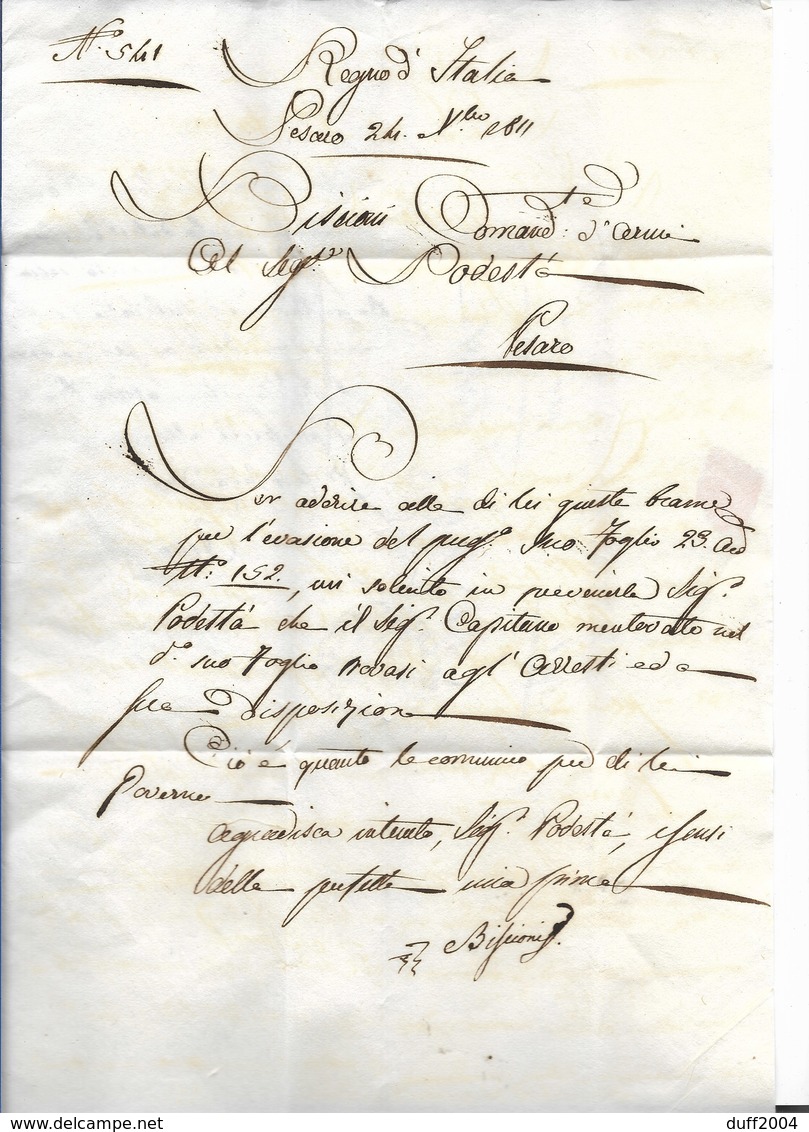 N.º 541
Regno d' Italia
Pesaro 24. N.bre 1811
Biscioni Comand.te d' Armi
Al Sig.r Podestà
Pesaro
Per aderire alle di lei giuste brame
per l'evasione del preg.o suo Foglio 23. and
N.º 152., mi solecito in prevenirla Sig.r
Podestà che il Sig.r Capitano mentovato nel
d.º suo Foglio trovasi agl' Arresti ed a
sua disposizione
Ciò è quanto le comunico per di lei
Governo
Aggradisca intanto, Sig.r Podestà, i sensi
della perfetta mia stima
Biscioni
duff2004